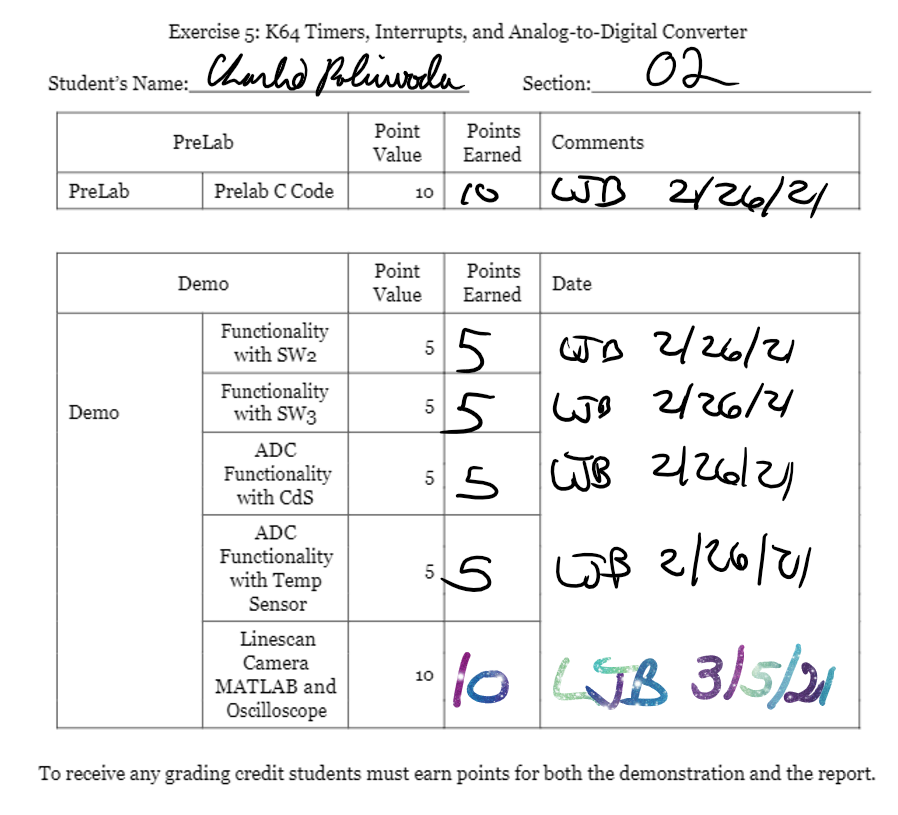 Exercise 5: K64 Timers, Interrupts, and Analog-to-Digital Converter
Student's Name: Charlie Poliwoda Section: 02
PreLab Point Value Points Earned Comments
PreLab Prelab C Code 10 10 LJB 2/26/21
Demo Point Value Points Earned Date
Demo
Functionality with SW2 5 5 LJB 2/26/21
Functionality with SW3 5 5 LJB 2/26/21
ADC Functionality with CdS 5 5 LJB 2/26/21
ADC Functionality with Temp Sensor 5 5 LJB 2/26/21
Linescan Camera MATLAB and Oscilloscope 10 10 LJB 3/5/21
To receive any grading credit students must earn points for both the demonstration and the report.